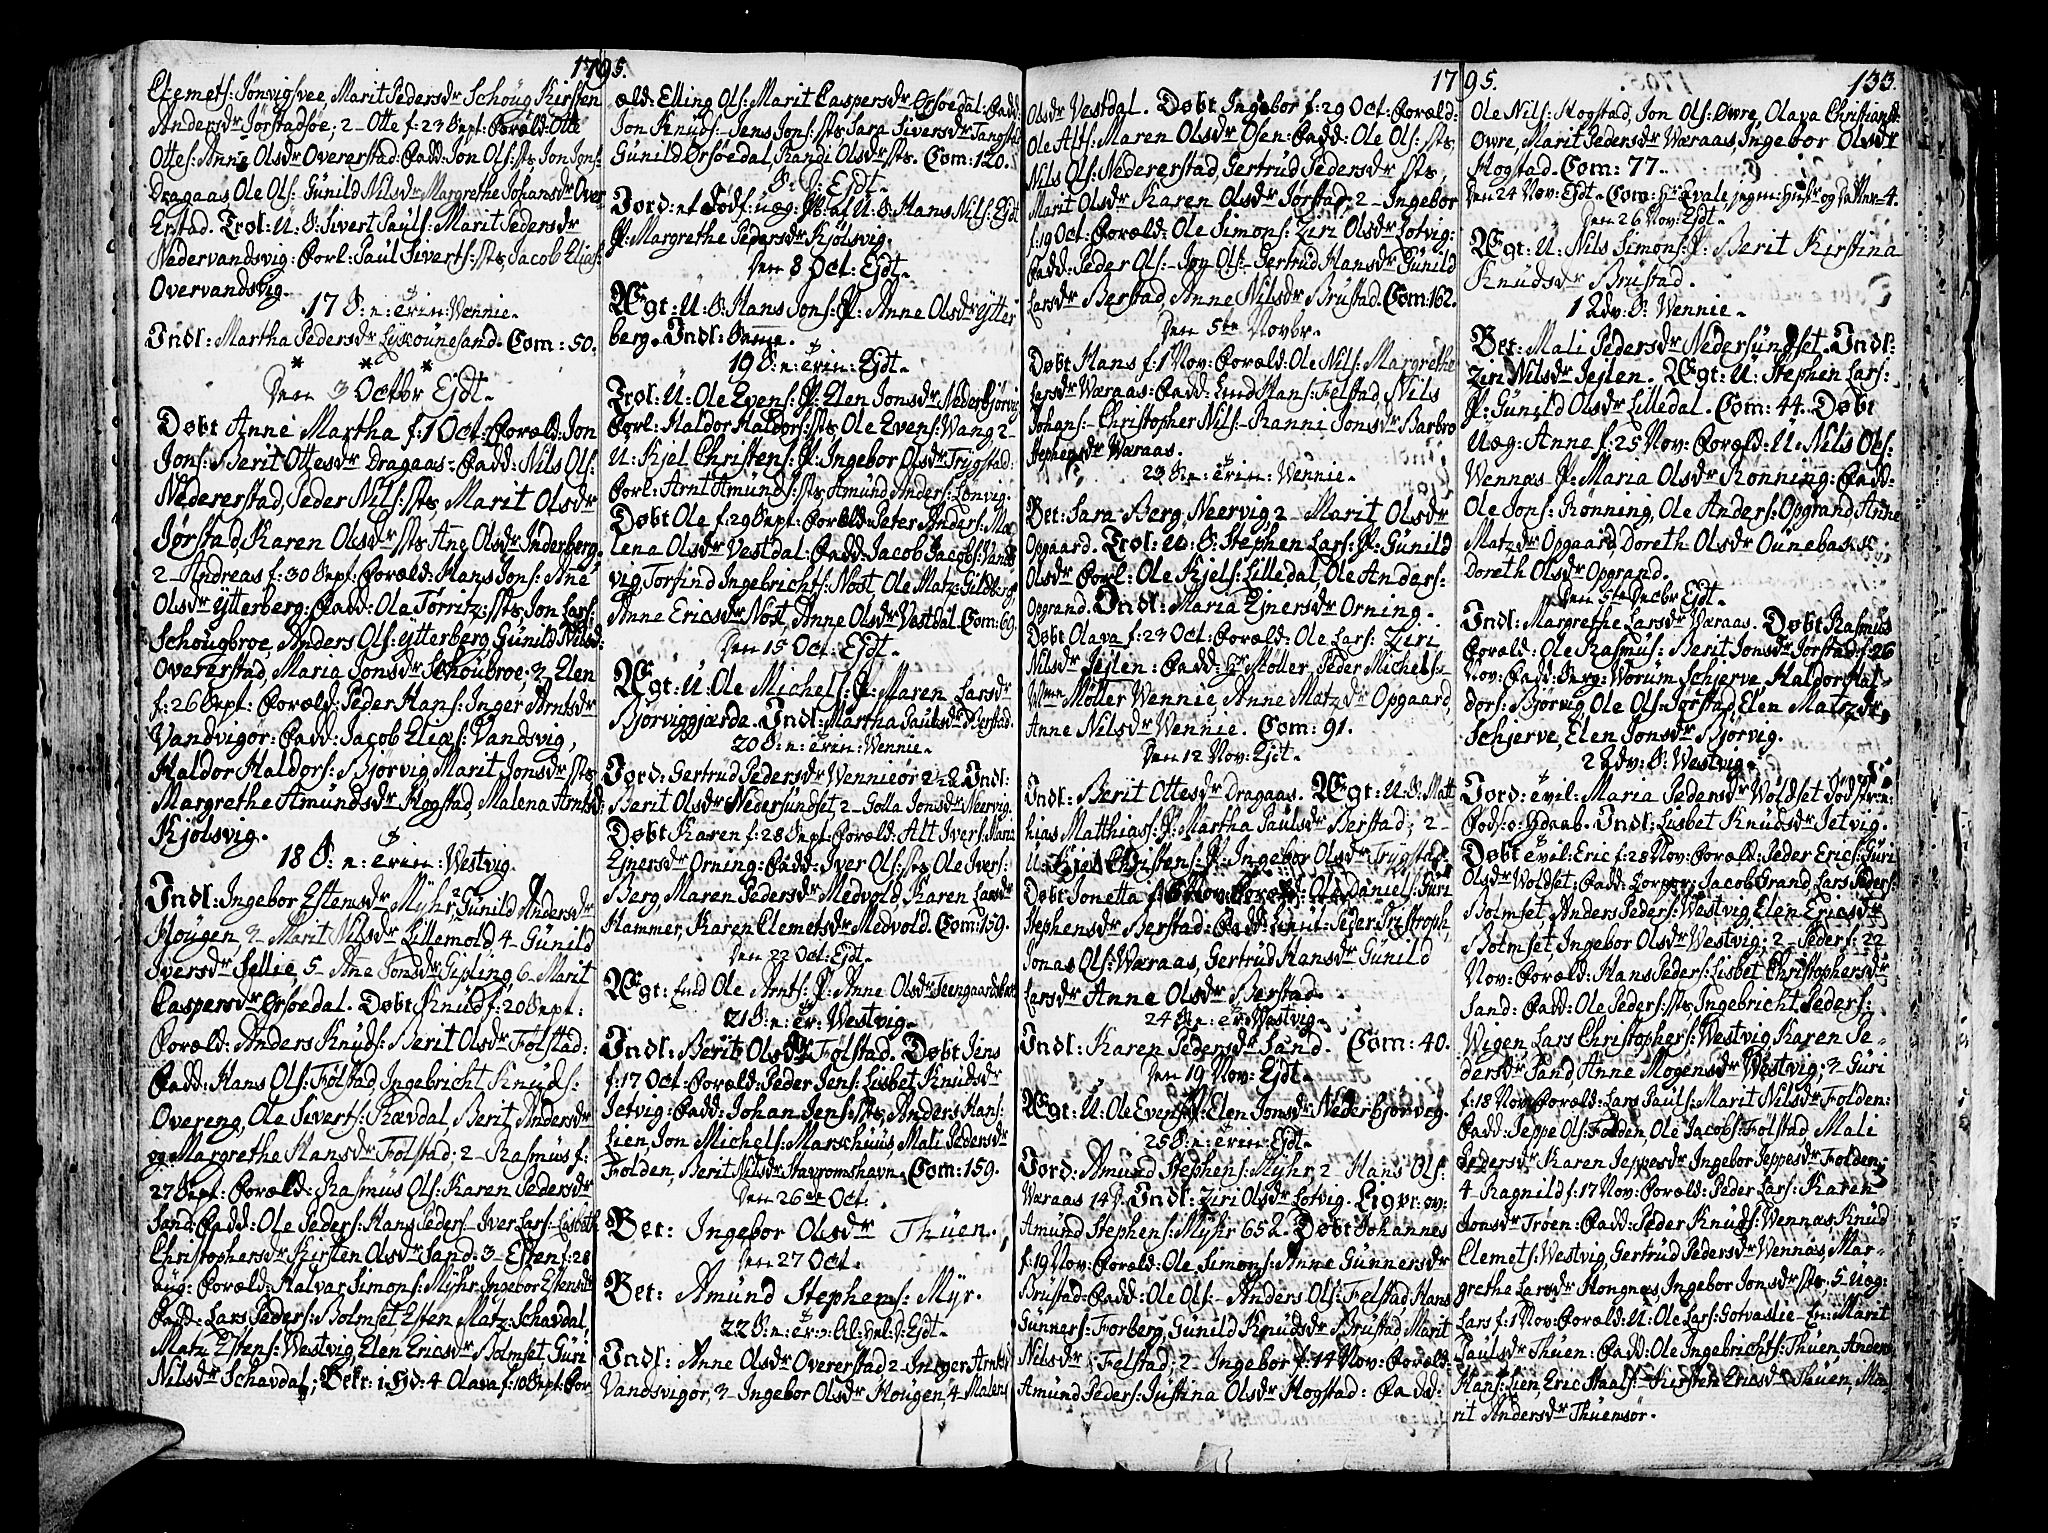 1795.
Clemets: Sønvigsvee, Marit Pedersdr Schoug Kirsten
Andersdr Jørstadsøe; 2 - Otte f: 23 Sept: Foræld: Otte
Ottes: Anne Olsdr Overerstad: Fadd: Jon Ols: sts, Jon Jons:
Dragaas Ole Ols: Gunild Nilsdr Margrethe Johansdr Over
Erstad. Trol: U: S: Sivert Pauls: Marit Pedersdr
Nedervandsvig: Forl: Paul Siverts: sts, Jacob Elias:
Overvandsvig.
17 S: n: Trin: Wennie.
Indl: Martha Pedersdr Lyxounesand. Com: 50.
Den 3 Octbr Ejdt.
Døbt Anne Martha f: 1 Oct: Foræld: Jon
Jons: Berit Ottesdr Dragaas - Fadd: Nils Ols:
Nedererstad, Peder Nils: sts, Marit Olsdr
Jørstad, Karen Olsdr sts, Ane Olsdr Inderberg.
2 - Andreas f: 30 Sept: Foræld: Hans Jons: Ane
Olsdr Ytterberg: Fadd: Ola Tørritz: sts, Jon Lars:
Schougbroe, Anders Ols: Ytterberg, Gunild Nilsd:
Overerstad, Maria Jonsdr Schoubroe; 3 Elen
f: 26 Sept: Foræld: Peder Hans: Inger Arntsdr
Vandvigør: Fadd: Jacob Elias: Vandsvig,
Haldor Haldors: Bjørvig, Marit Jonsdr sts,
Margrethe Amundsdr Hogstad, Malena Arntsd:
Kjølsvig.
18 S: n: Trin: Westvig.
Indl: Ingebor Estensdr Myhr, 2 Gunild Andersdr
Hougen, 3 - Marit Nilsdr Lillemold, 4 - Gunild
Iversdr Sellie, 5 - Ane Jonsdr Gipling, 6 - Marit
Caspersdr Ersøedal. Døbt Knud f: 20 Sept:
Foræld: Anders Knuds: Berit Olsdr Følstad:
Fadd: Hans Ols: Følstad, Ingebricht Knuds:
Overeng, Ole Siverts: Rævdal, Berit Andersdr
og Margretha Hansdr Følstad; 2 - Rasmus f:
27 Sept: Foræld: Rasmus Ols: Karen Pedersdr
Sand: Fadd: Ole Peders: Hans Peders: Iver Lars: Lisbeth
Christophersdr Kirsten Olsdr Sand. 3 - Esten f: 28
Aug: Foræld: Halvar Simons: Myhr, Ingebor Estensdr
Fadd: Lars Peders: Bolmset, Esten Matz: Schavdal,
Matz Estens: Westvig, Elen Ericsdr Bolmset, Guri
Nilsdr Schavdal; 4 Olava f: 10 Sept: For
æld: Elling Ols: Marit Caspersdr Ørsøedal: Fadd
Jon Knuds: Jens Jons: sts Sara Siversdr Tangstad
Gunild Ørsøedal, Randi Olsdr sts. Com: 120.
S: D: Ejdt.
Jord: et Fødf: uæg: P: B: af U: S: Hans Nils: Ejdt
P: Margrethe Pedersdr Kjølsvig.
Den 8 Oct: Ejdt.
Ægt: U: S: Hans Jons: P: Anne Olsdr Ytter
berg. Indl: Samme.
19 S: n: Trin: Ejdt.
Trol: U: Ole Evens: P: Elen Jonsdr Nederbjørvig
Forl: Haldor Haldors: sts, Ole Evens: Wang 2 -
U: Kjel Christens: P: Ingebor Olsdr Trygstad:
Forl: Arnt Amunds: sts Amund Anders: Lonvig.
Døbt Ole f: 29 Sept: Foræld: Peter Anders: Ma
lena Olsdr Vestdal: Fadd: Jacob Jacobs: Vands
vig, Torfind Ingebrichts: Nost, Ole Matz: Gildberg,
Anne Ericsdr Nost, Anne Olsdr Vestdal. Com: 69.
Den 15 Oct: Ejdt.
Ægt: U: Ole Michels: P: Maren Larsdr
Bjørviggjærde. Indl: Martha Paulsdr Berstad.
20 S: n: Trin: Wennie.
Jord: Gertrud Pedersdr Wennieør 2 - 2 Indl:
Berit Olsdr Nedersundset, 2 - Golla Jonsdr Neervig.
Døbt Karen f: 28 Sept: Foræld: Alt Ivers: Maria
Ejnersdr Orning: Fadd: Iver Ols: sts, Ole Ivers:
Berg, Maren Pedersdr Medvold, Karen Larsdr
Hammer, Karen Clemetsdr Medvold. Com: 159.
Den 22 Oct: Ejdt.
Ægt: Ole Arnts: P: Anne Olsdr
21 S: n: Tr: Westvig.
Indl: Berit Olsdr Følstad. Døbt Jens
f: 17 Oct: Foræld: Peder Jens: Lisbet Knudsdr
Jetvig: Fadd: Johan Jens: sts, Anders Hans:
Lien, Jon Michels: Marschuus, Mali Pedersdr
Folden, Berit Nilsdr Havromshavn. Com: 159.
Den 26de Oct.
Bet: Ingebor Olsdr Thuen.
Den 27 Oct.
Bet: Amund Stephens: Myr.
22 S: n: Tr: Al: Hel: D: Ejdt.
Indl: Anne Olsdr Overerstad 2 - Inger Arntsd
Vandsvigør, 3 - Ingebor Olsdr Hougen, 4 Malena
1795.
133.
Olsdr Vestdal. Døbt Ingebor f: 29 Oct: Foræld:
Ole Alts: Maren Olsdr Gjen: Fadd: Ole Ols: sts,
Nils Ols: Nedererstad, Gertrud Pedersdr sts,
Marit Olsdr Karen Olsdr Jørstad; 2 - Ingebor
f: 19 Oct: Foræld: Ole Simons: Ziri Olsdr Lotvig:
Fadd: Peder Ols: - Joy Ols: - Gertrud Hansdr Gunild
Larsdr Berstad, Anne Nilsdr Brustad. Com: 162.
Den 5te Novbr.
Døbt Hans f: 1 Nov: Foræld: Ole Nils: Margrethe
Larsdr Væraas: Fadd: Lind Hans: Felstad, Nils
Johans: Christopher Nils: Ranni Jonsdr Barbro
Stephensdr Væraas.
23 S: n: Trin: Wennie.
Bet: Sara Berg, Neervig, 2 - Marit Olsdr
Opgaard. Trol: U: S: Stephen Lars: P: Gunild
Olsdr Forl: Ole Kjels: Lilledal, Ole Anders:
Opgrand. Indl: Maria Ejnersdr Orning.
Døbt Olava f: 23 Oct: Foræld: Ole Lars: Ziri
Nilsdr Jejlen: Fadd: Hr Møller, Peder Michels:
Møller Wennie, Anne Matzdr Opgaard,
Anne Nilsdr Wennie. Com: 91.
Den 12 Nov: Ejdt.
Indl: Berit Ottesdr Dragaas. Ægt: U: S: Matt
hias Matthias: P: Martha Paulsdr Berstad; 2 -
U: Kjel Christens: P: Ingebor Olsdr Trygstad.
Døbt Jonetta f: 6 Nov: Foræld: Ole Daniels: Guri
Stephensdr Berstad: Fadd: Lieut: Peder
Jonas Ols: Væraas, Gertrud Hansdr Gunild
Larsdr Anne Olsdr Berstad.
24 S: n: Tr: Westvig.
Indl: Karen Pedersdr Sand. Com: 40.
Den 19 Nov: Ejdt.
Ægt: U: Ole Evens: P: Elen Jonsdr Nederbjørvig.
25 S: n: Trin: Ejdt.
Jord: Amund Stephens: Myhr, 2 - Hans Ols:
Væraas 14 D. Indl: Ziri Olsdr Lotvig. Ligpr: ov:
Amund Stephens: Myhr 65 2. Døbt Johannes
f: 19 Nov: Foræld: Ole Simons: Anne Gunnersdr
Brustad: Fadd: Ole Ols: - Anders Ols: Felstad Hans
Gunners: Forberg, Gunild Knudsdr Brustad, Marit
Nilsdr Felstad; 2 - Ingebor f: 14 Nov: Foræld:
Amund Peders: Justina Olsdr Hogstad: Fadd:
Ole Nils: Hogstad, Jon Ols: Øwre, Olava Christiansd:
Øwre, Marit Pedersdr Væraas, Ingebor Olsdr
Hogstad. Com: 77.
Den 24 Nov: Ejdt. Com: Hr Qvale,
Den 26 Nov: Ejdt.
Ægt: U: Nils Simons: P: Berit Kirstina
Knudsdr Brustad.
1 Adv: S: Wennie.
Bet: Mali Pedersdr Nedersundset. Indl:
Ziri Nilsdr Jejlen. Ægt: U: Stephen Lars:
P: Gunild Olsdr Lilledal. Com: 44. Døbt
Uæg: Anne f: 25 Nov: Foræld: U: Nils Ols:
Wennæs P: Maria Olsdr Rønning: Fadd:
Ole Jons: Rønning, Ole Anders: Opgrand, Anne
Matzdr Opgaard Doreth Olsdr Ounebak
Doreth Olsdr Opgrand.
Den 5te Decbr Ejdt.
Indl: Margrethe Larsdr Væraas. Døbt Rasmus
Foræld: Ole Rasmus: Berit Jonsdr Jørstad f: 26
Nov: Fadd: Berg: Worum Schjerve Haldor Hal-
dors: Bjørvig, Ole Ols: Jørstad, Elen Matzdr
Schjerve, Elen Jonsdr Bjørvig.
2 Adv: S: Westvig.
Jord: evil: Maria Pedersdr Woldset
Indl: Lisbet Knudsdr Jetvig.
Døbt evil: Eric f: 28 Nov: Foræld: Peder Erics: Guri
Olsdr Woldset: Fadd: Jacob Grand, Lars Peders:
Bolmset, Anders Peders: Westvig, Elen Ericsdr
Bolmset, Ingebor Olsdr Westvig; 2 - Peder f: 22
Nov: Foræld: Hans Peders: Lisbet Christophersdr
Sand: Fadd: Ole Peders: sts, Ingebricht Peders:
Wigen, Lars Christophers: Westvig, Karen Pe-
dersdr Sand, Anne Mogensdr Westvig; 3 Guri
f: 18 Nov: Foræld: Lars Pauls: Marit Nilsdr Folden:
Fadd: Jeppe Ols: Folden, Ole Jacobs: Følstad, Mali
Pedersdr Karen Jeppesdr Ingebor Jeppesdr Folden;
4 - Ragnild f: 17 Nov: Foræld: Peder Lars: Karen
Jonsdr Trøen: Fadd: Peder Knuds: Wennæs, Knud
Clemets: Westvig, Gertrud Pedersdr Wennæs, Mar-
grethe Larsdr Hongnæs, Ingebor Jonsdr sts; 5 - Uæg:
Lars f: 5 Nov: Foræld: U: Ole Lars: Gotvaslie - En: Marit
Paulsdr Thuen: Fadd: Ole Ingebrichts: Thuen, Anders
Hans: Lien, Eric Haals: Kirsten Ericsdr Thuen, Ma
rit Andersdr Thuensør.